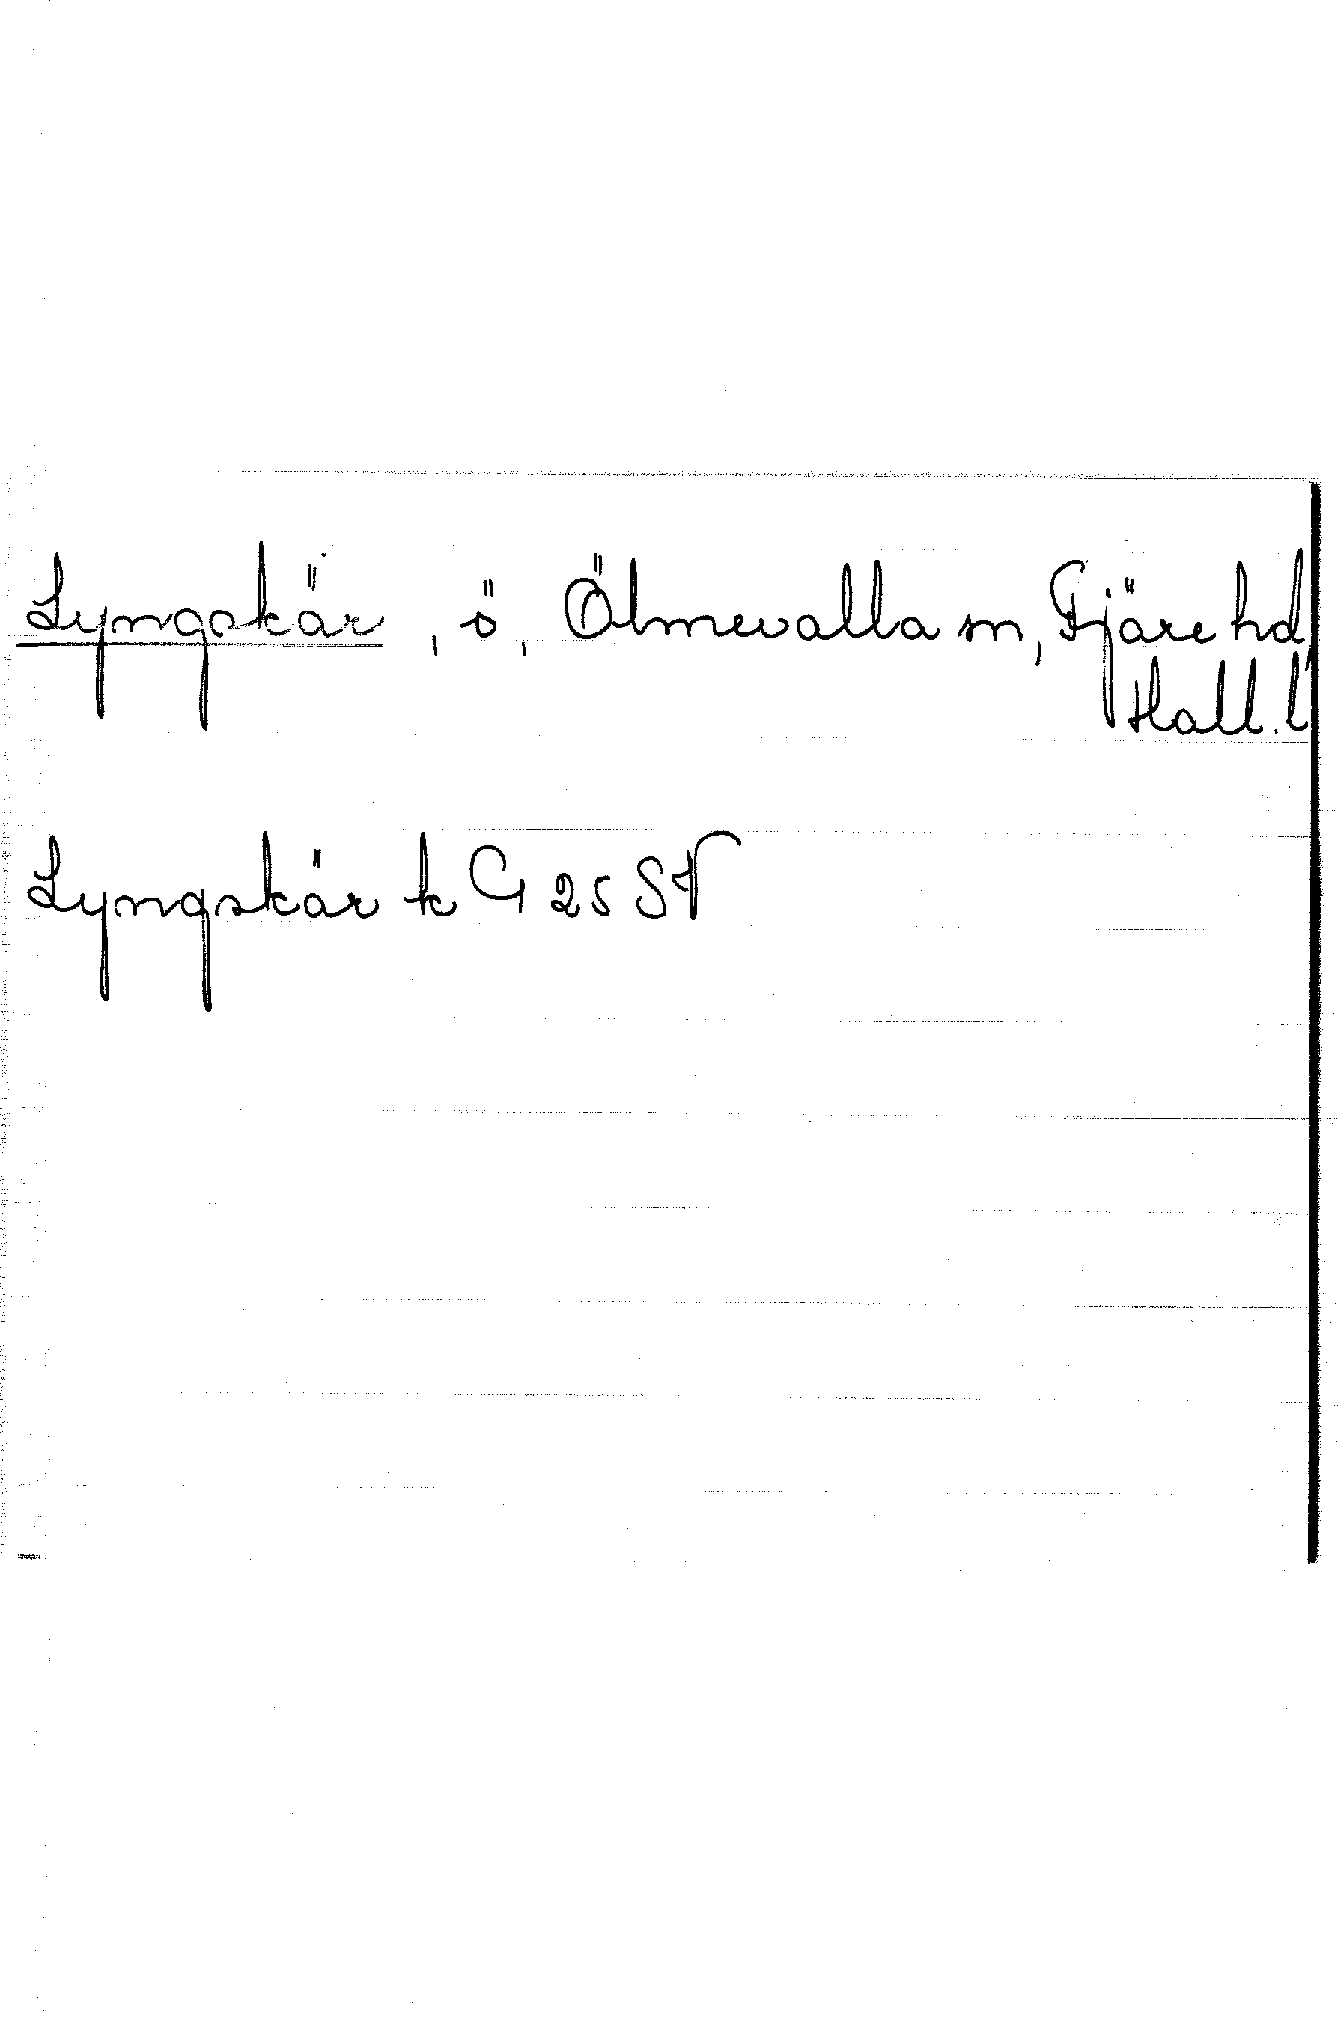 Lyngskär, ö, Ölmevalla sn, Fjäre hd,
Hall. l
Lyngskär k G 25 SV